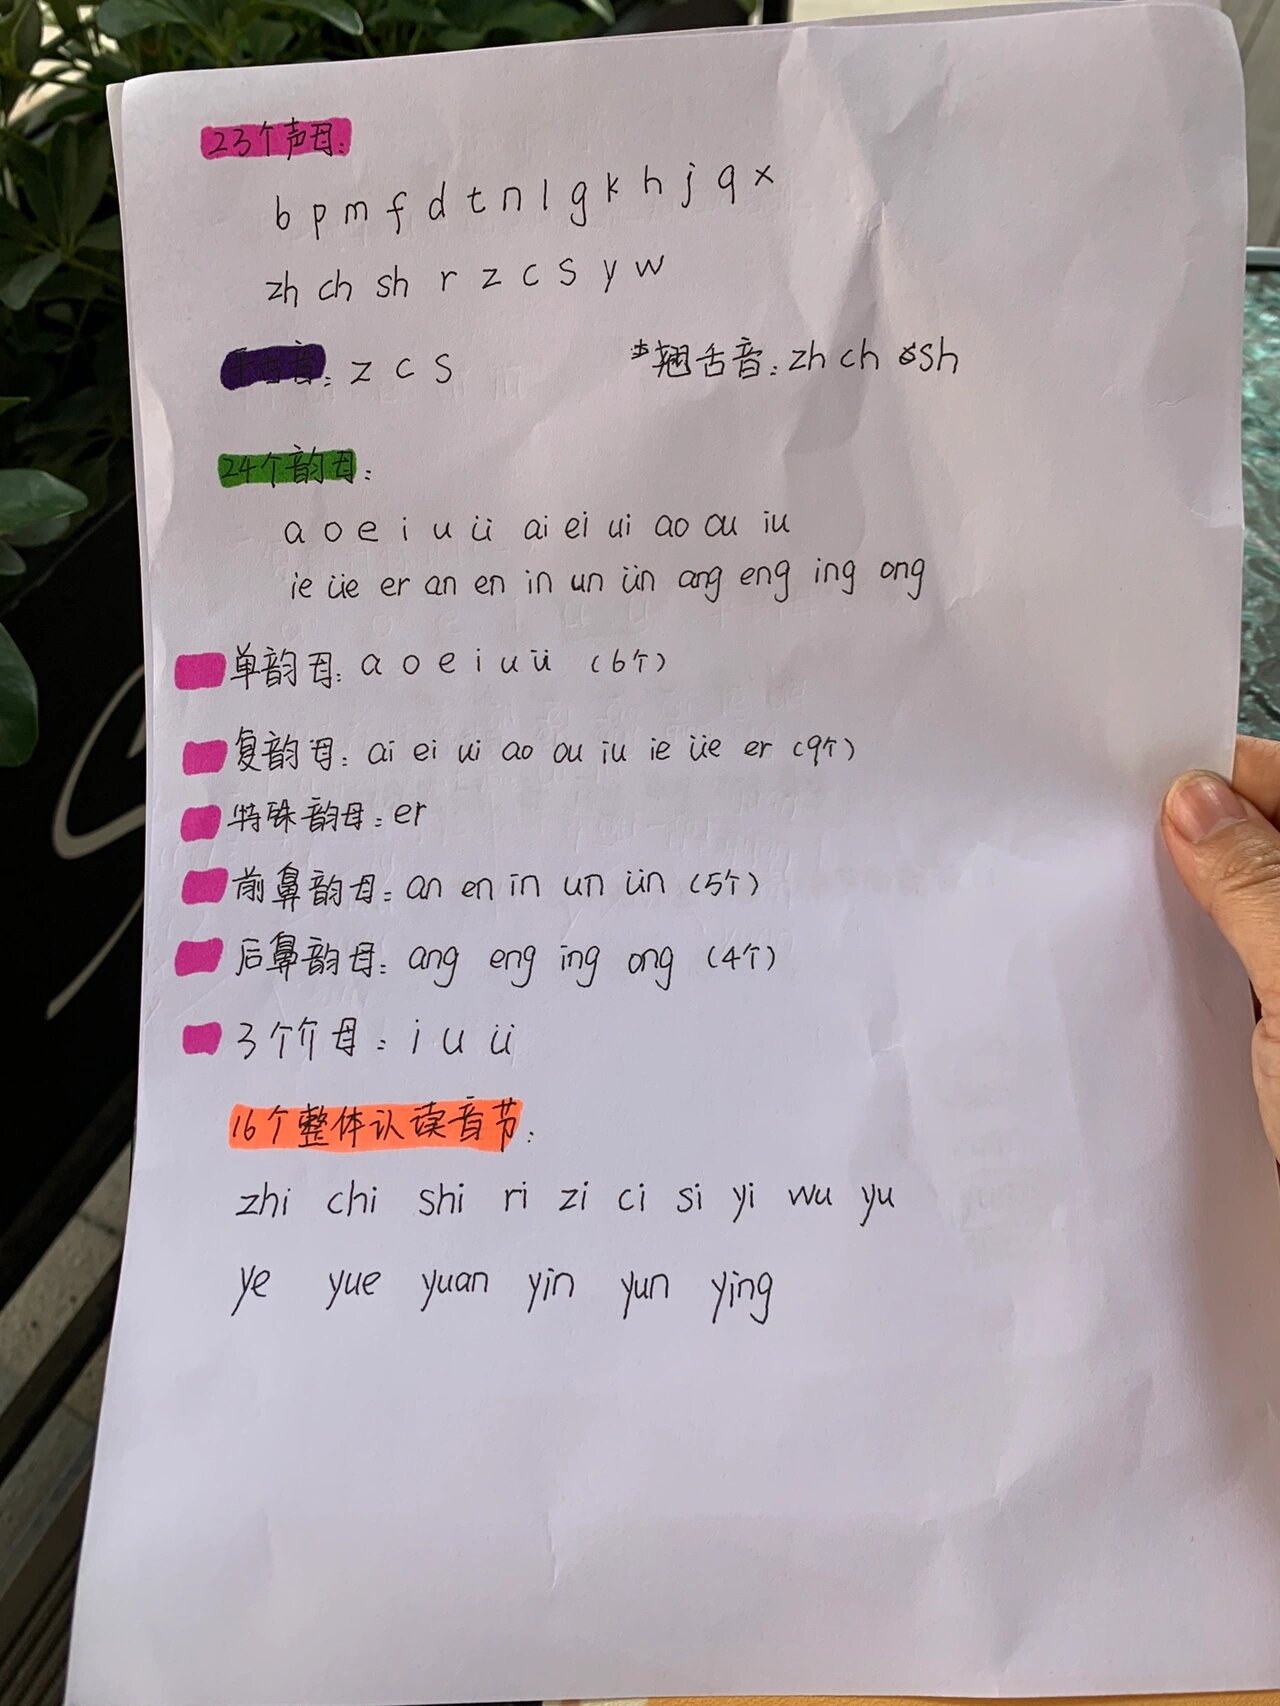 23个声母:
b p m f d t n l g k h j q x
zh ch sh r z c s y w
平舌音: z c s *翘舌音: zh ch sh
24个韵母:
a o e i u ü ai ei ui ao ou iu
ie üe er an en in un ün ang eng ing ong
单韵母: a o e i u ü (6个)
复韵母: ai ei ui ao ou iu ie üe er (9个)
特殊韵母: er
前鼻韵母: an en in un ün (5个)
后鼻韵母: ang eng ing ong (4个)
3个介母: i u ü
16个整体认读音节:
zhi chi shi ri zi ci si yi wu yu
ye yue yuan yin yun ying